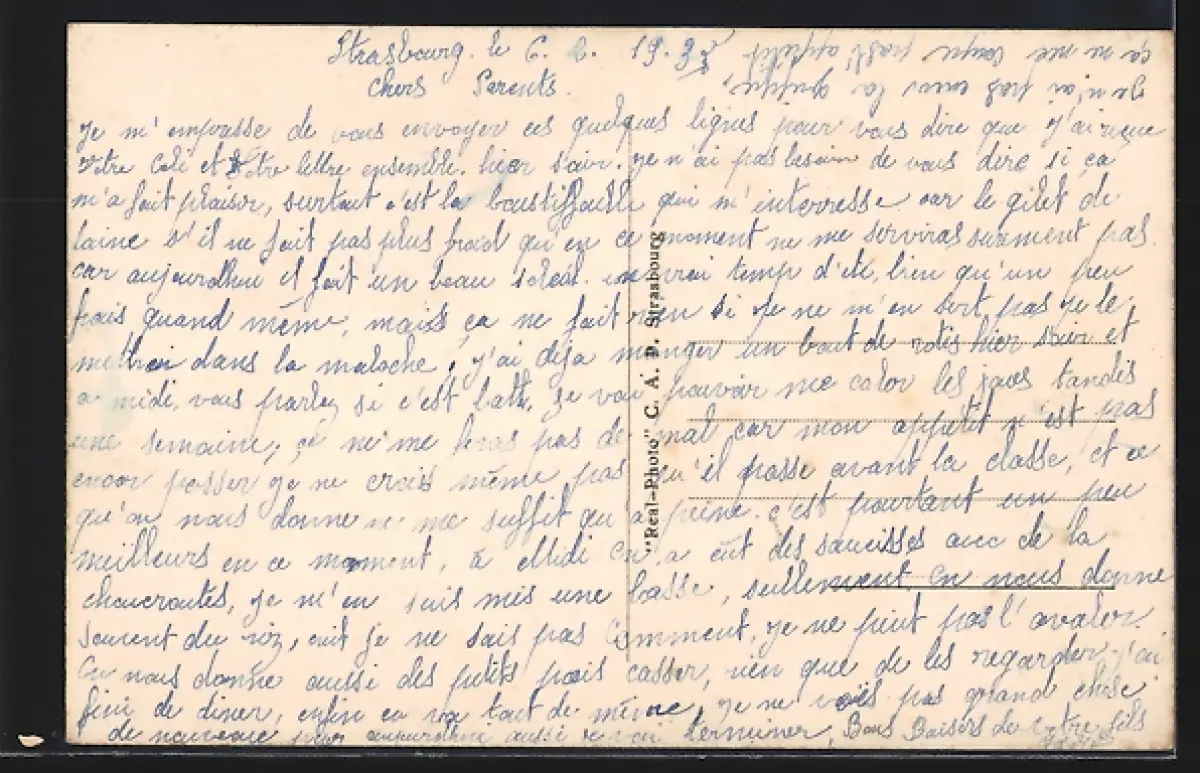 Strasbourg. le 6. 2. 19.3
Chers Parents.
Je m'empresse de vous envoyer ces quelques lignes pour vous dire que j'ai reçue
votre coli et votre lettre ensemble. hier soir. je n'ai pas besoin de vous dire si ça
m'a fait plaisir, surtout c'est la boustiffaille qui m'interresse car le gilet de
laine s'il ne fait pas plus froid qu'en ce moment ne me serviras surment pas.
car aujourdhui il fait un beau soleil. un vrai temp d'été, bien qu'un peu
frais quand même, mais ça ne fait rien si je ne m'en sert pas je le
mettrai dans la maloche, j'ai deja manger un bout de rotis hier soir et
a midi, vous parlez si c'est bath, je vai pouvoir me caler les joues tandis
une semaine, ça ne me feras pas de mal car mon appetit n'est pas
encor passer je ne crois même pas qu'il passe avant la classe, et ce
qu'on nous donne ne me suffit qu'a peine. c'est pourtant un peu
meilleurs en ce moment, a Midi on a eut des saucisses avec de la
choucroutes, je m'en suis mis une basse, seullement on nous donne
souvent du riz, cuit je ne sais pas comment, je ne peut pas l'avaler.
On nous donne aussi des petits pois casser, rien que de les regarder j'ai
fini de diner, enfin ça va tout de même, je ne vois pas grand chose
de nouveau pour aujourdhui aussi je vai terminer, Bons Baisers de votre fils
"Real-Photo" C. A. P. Strasbourg